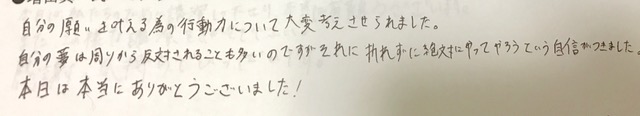 自分の願いを叶える為の行動力について大変考えさせられました。
自分の夢は周りから反対されることも多いのですがそれに折れずに絶対にやってやろうという自信がつきました。
本日は本当にありがとうございました!